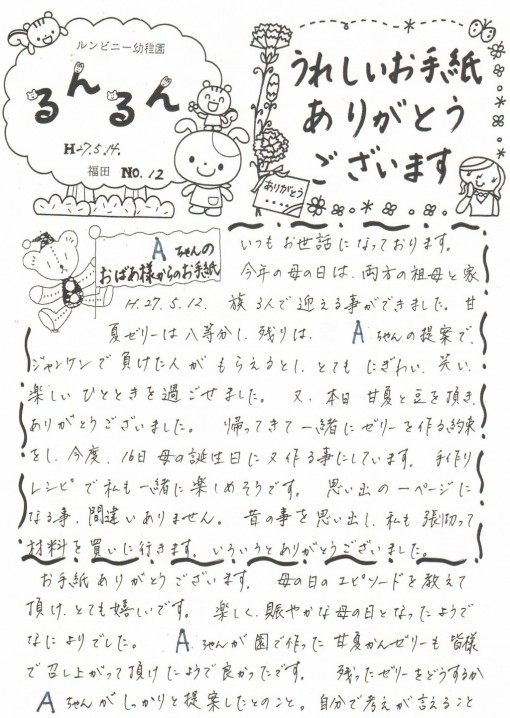 ルンビニー幼稚園
るんるん
H27.5.14.
福田 No.12
うれしいお手紙
ありがとう
ございます
ありがとう
Aちゃんの
おばあ様からのお手紙
H.27.5.12.
いつもお世話になっております。
今年の母の日は、両方の祖母と家
族8人で迎える事ができました。甘
夏ゼリーは八等分し、残りは、Aちゃんの提案で、
ジャンケンで負けた人がもらえるとし、とてもにぎわい、笑い、
楽しいひとときを過ごせました。又、本日甘夏と豆を頂き、
ありがとうございました。帰ってきて一緒にゼリーを作る約束
をし、今度、16日母の誕生日に又作る事にしています。手作り
レシピで私も一緒に楽しめそうです。思い出の一ページに
なる事、間違いありません。昔の事を思い出し、私も張切って
材料を買いに行きます。いろいろとありがとうございました。
お手紙ありがとうございます。母の日のエピソードを教えて
頂け、とても嬉しいです。楽しく、賑やかな母の日となったようで
なによりでした。Aちゃんが園で作った甘夏かんゼリーも皆様
で召し上がって頂けたようで良かったです。残ったゼリーをどうするか
Aちゃんがしっかりと提案したとのこと。自分で考えが言えること